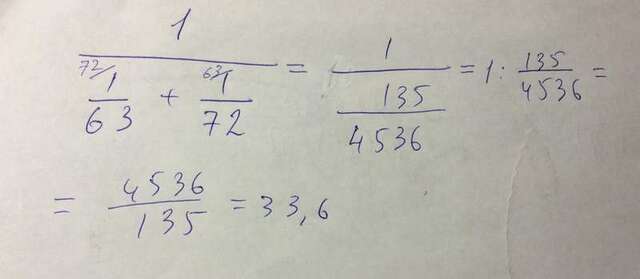 1/(72/ 1/63 + 63/ 1/72) = 1/(135/4536) = 1 : 135/4536 =
= 4536/135 = 33,6